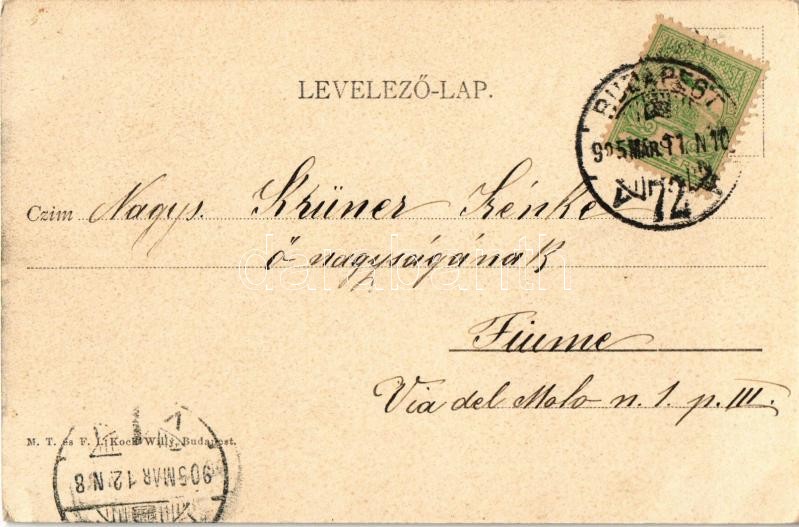 LEVELEZŐ-LAP.
BUDAPEST
905 MÁR. 11. N 10
72
Czim Nagys. Krüner Lénke
ő nagyságának
darabanth
Fiume
Via del Molo n. 1. p. III.
M. T. és F. I. Kock Willy, Budapest.
905 MAR 12 N 8